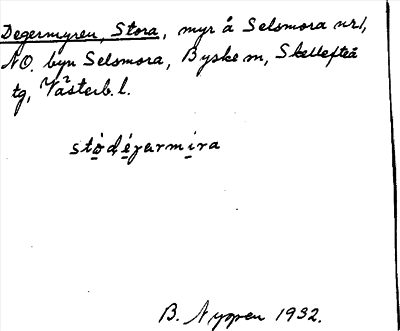 Degermyren, Stora, myr å Selsmora nr 1,
NO. byn Selsmora, Byske sn, Skellefteå
tg, Västerb. l.
stọ̀dẹ́garmịra
B. Nyppen 1932.